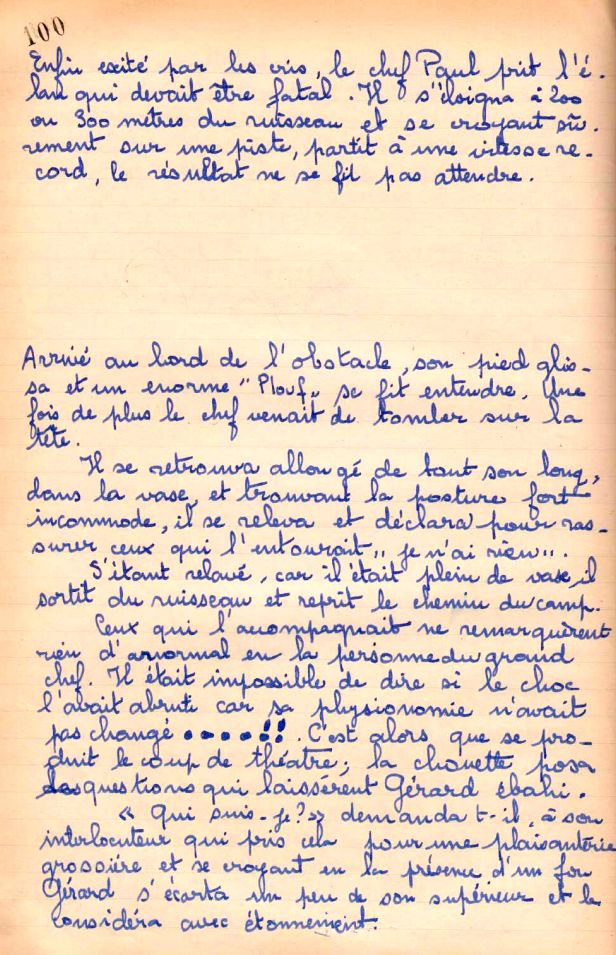 100
Enfin exité par les cris, le chef Paul prit l'é-
lan qui devait être fatal. Il s'éloigna à 200
ou 300 mètres du ruisseau et se croyant sû-
rement sur une piste, partit à une vitesse re-
cord, le résultat ne se fit pas attendre.
Arrivé au bord de l'obstacle, son pied glis-
sa et un enorme "Plouf" se fit entendre. Une
fois de plus le chef venait de tomber sur la
tête.
Il se retrouva allongé de tout son long,
dans la vase, et trouvant la posture fort
incommode, il se releva et déclara pour ras-
surer ceux qui l'entourait "je n'ai rien".
S'étant relavé, car il était plein de vase, il
sortit du ruisseau et reprit le chemin du camp.
Ceux qui l'accompagnait ne remarquèrent
rien d'anormal en la personne du grand
chef. Il était impossible de dire si le choc
l'avait abruti car sa physionomie n'avait
pas changé .....!!. C'est alors que se pro-
duit le coup de théatre; la chouette posa
des questions qui laissérent Gérard ébahi.
« Qui suis-je?» demanda t-il, à son
interlocuteur qui pris cela pour une plaisantérie
grossiére et se croyant en la présence d'un fou
Gérard s'écarta un peu de son supérieur et le
considéra avec étonnement.